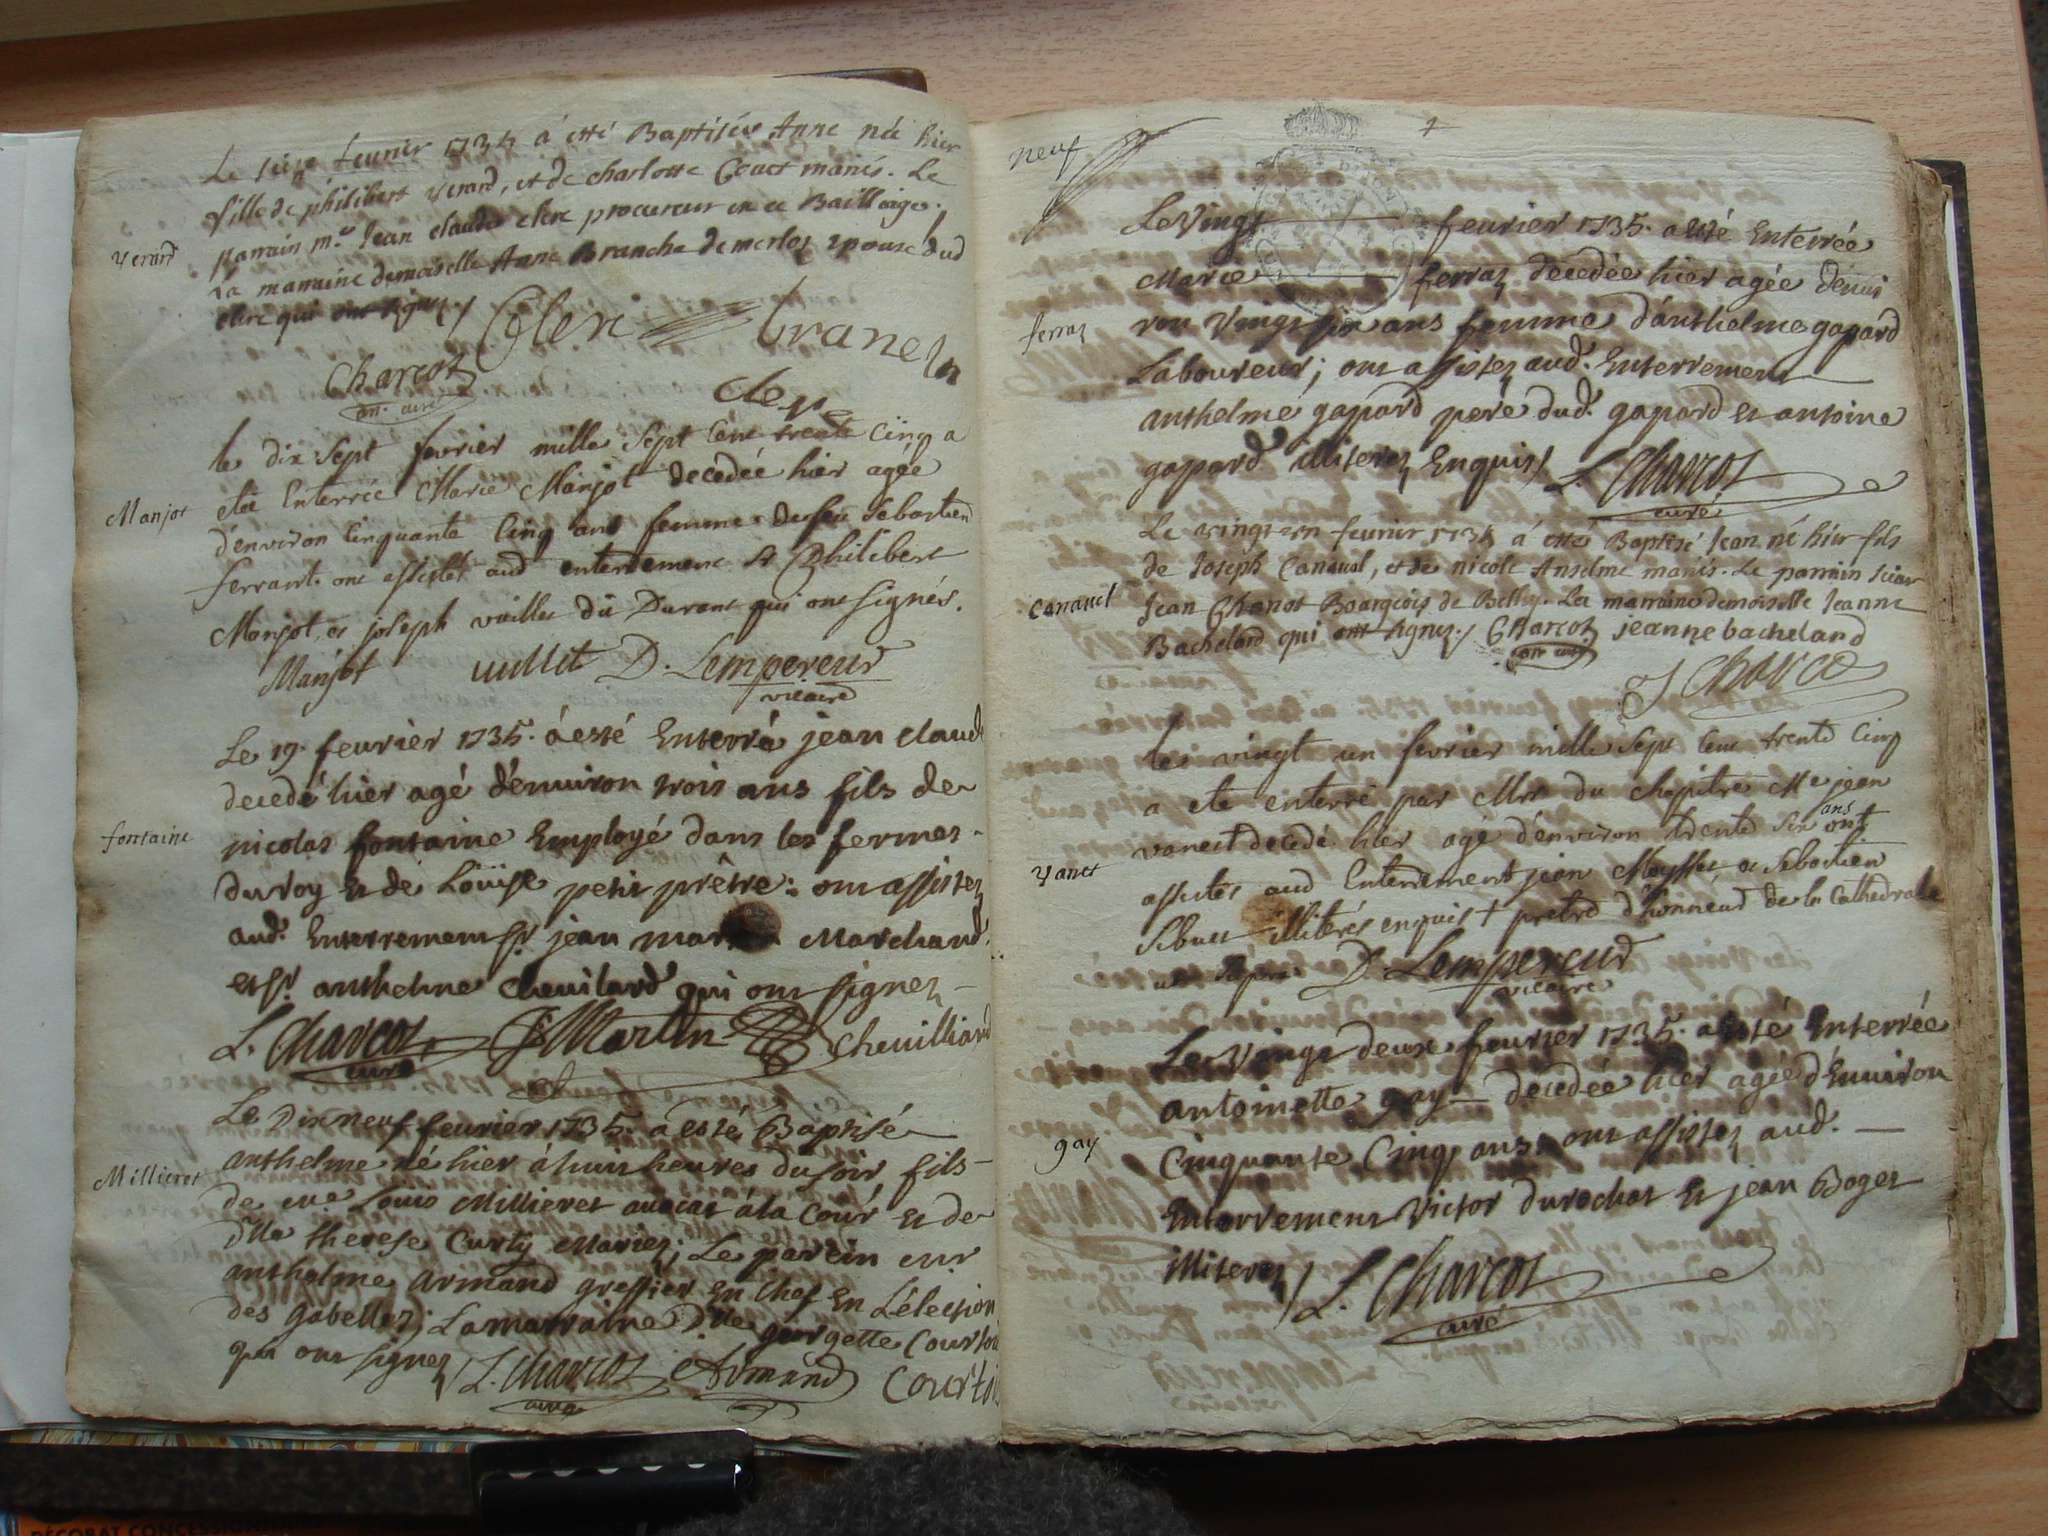 Le seize feurier 1735 à etté Baptisée Anne née hier
fille de philibert verard, et de charlotte Genet mariés. Le
parrain m.e Jean claude clerc procureur en ce Bailliage.
verard
La marraine demoiselle Anne Branche de merloz epouse dud
clerc qui ont signez./. Clerc branche
Charcot clerc
on. curé
le dix sept fevrier mille sept Cent trente Cinq a
Manjot
eté Enterrée Marie Manjot decedée hier agée
d'environ Cinquante Cinq ans femme de feu Sebastien
ferrant. ont assistés aud enterrement Philibert
Manjot, et joseph vuillet dit Durant qui ont signés.
Manjot vullit D. Lempereur
vicaire
Le 19. feurier 1735. à esté Enterré jean claude
decedé hier agé d'enuiron trois ans fils de
fontaine
nicolas fontaine Employé dans les fermes
du roy et de Loüise petit prêtre: ont assistez
aud. Enterrement Sr. jean martin Marchand.
et Sr. anthelme Cheuilard qui ont signez
L. Charcot JMartin Cheuilliard
curé
Le Dix neuf feurier 1735. à esté Baptisé
anthelme né hier à huit heures du soir, fils
Millieret
de me. Louis Millieret auocat à la Cour et de
Dlle therese Curty Mariez; Le parein mr
anthelme armand greffier En Chef En Lélection
des gabelles; La marraine Dlle georgette Courtois
qui ont signez L. Charcot Armand Courtois
curé
neuf
Le Vingt feurier 1735. a esté Enterrée
Marie ferraz decedée hier agée d'enui
ferraz
ron Vingt six ans femme d'anthelme gapard
Laboureur; ont assistez aud. Enterrement
anthelme gapard pere dud. gapard et antoine
gapard illiterez Enquis/. L. Charcot
curé
Le vingt un feurier 1735 à etté Baptisé Jean né hier fils
de Joseph Cananel, et de nicole Anselme mariés. Le parrain sieur
cananel
Jean Charcot Bourgeois de Belley. La marraine demoiselle Jeanne
Bachelard qui ont signez./. Charcot jeanne bachelard
on curé
J Charcot
Le vingt un fevrier mille Sept Cent trente Cinq
a eté enterré par Mrs du Chapitre Me jean
vanet decedé hier agé d'environ trente six ans ont
vanet
assistés aud Enterrement jean Moysset, et Sebastien
Sibuet illiterés enquis + pretre d'honneur de la Cathedrale
D. Lempereur
vicaire
Le Vingt deux feurier 1735. a esté Enterrée
antoinette gay decedée hier agée d'Enuiron
gay
Cinquante Cinq ans. ont assistez aud.
Enterrement Victor durochat Et jean Boget
illiterez/. L. Charcot
curé